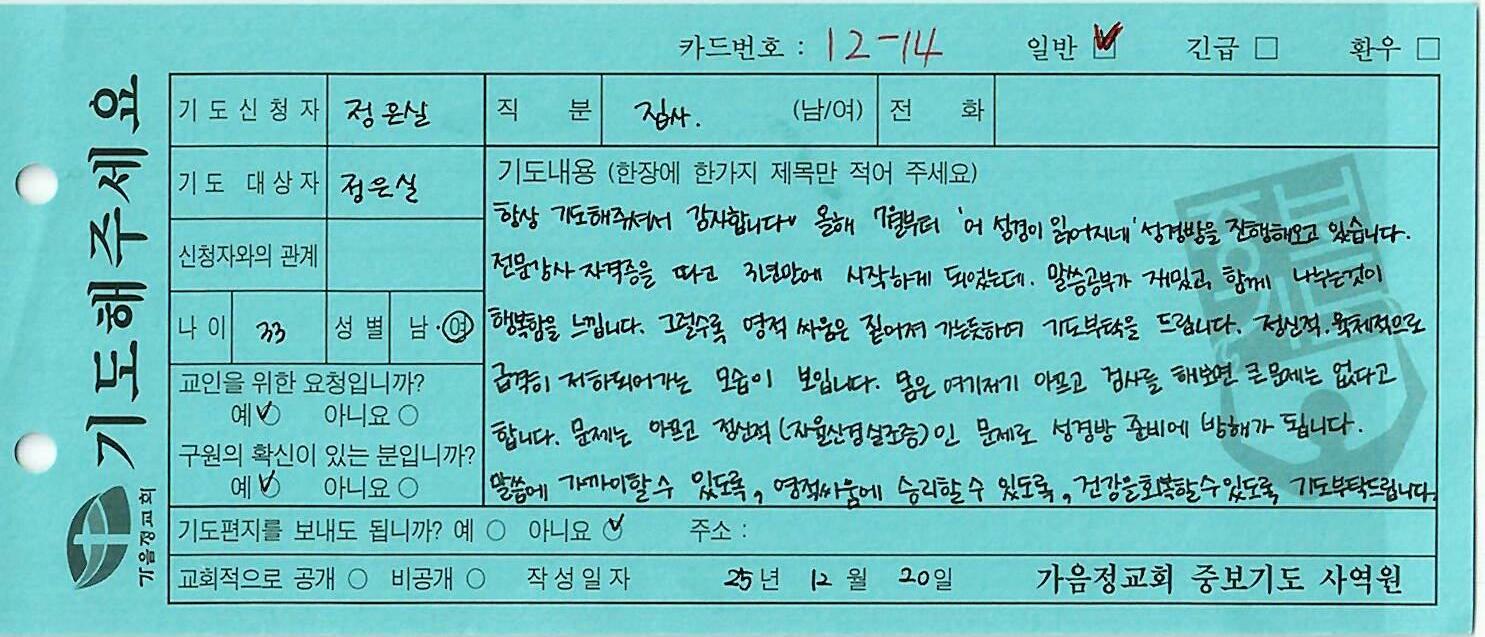 카드번호 : 12-14 일반 ☑ 긴급 □ 환우 □
기도해주세요
기도신청자 정은실 직 분 집사. (남/여) 전 화
기도 대상자 정은실 기도내용 (한장에 한가지 제목만 적어 주세요)
항상 기도해주셔서 감사합니다♥ 올해 7월부터 '어 성경이 읽어지네' 성경방을 진행해오고 있습니다.
신청자와의 관계
전문강사 자격증을 따고 3년만에 시작하게 되었는데. 말씀공부가 재밌고, 함께 나누는것이
나이 33 성별 남·여
행복함을 느낍니다. 그럴수록 영적 싸움은 짙어져 가는듯하여 기도부탁을 드립니다. 정신적.육체적으로
급격히 저하되어가는 모습이 보입니다. 몸은 여기저기 아프고 검사를 해보면 큰문제는 없다고
교인을 위한 요청입니까?
예 ✓○ 아니요 ○
합니다. 문제는 아프고 정신적(자율신경실조증)인 문제로 성경방 준비에 방해가 됩니다.
구원의 확신이 있는 분입니까?
예 ✓○ 아니요 ○
말씀에 가까이할 수 있도록, 영적싸움에 승리할 수 있도록, 건강을회복할수있도록 기도부탁드립니다.
기도편지를 보내도 됩니까? 예 ○ 아니요 ✓○ 주소 :
교회적으로 공개 ○ 비공개 ○ 작성일자 25년 12월 20일 가음정교회 중보기도 사역원
가음정교회
중보기도